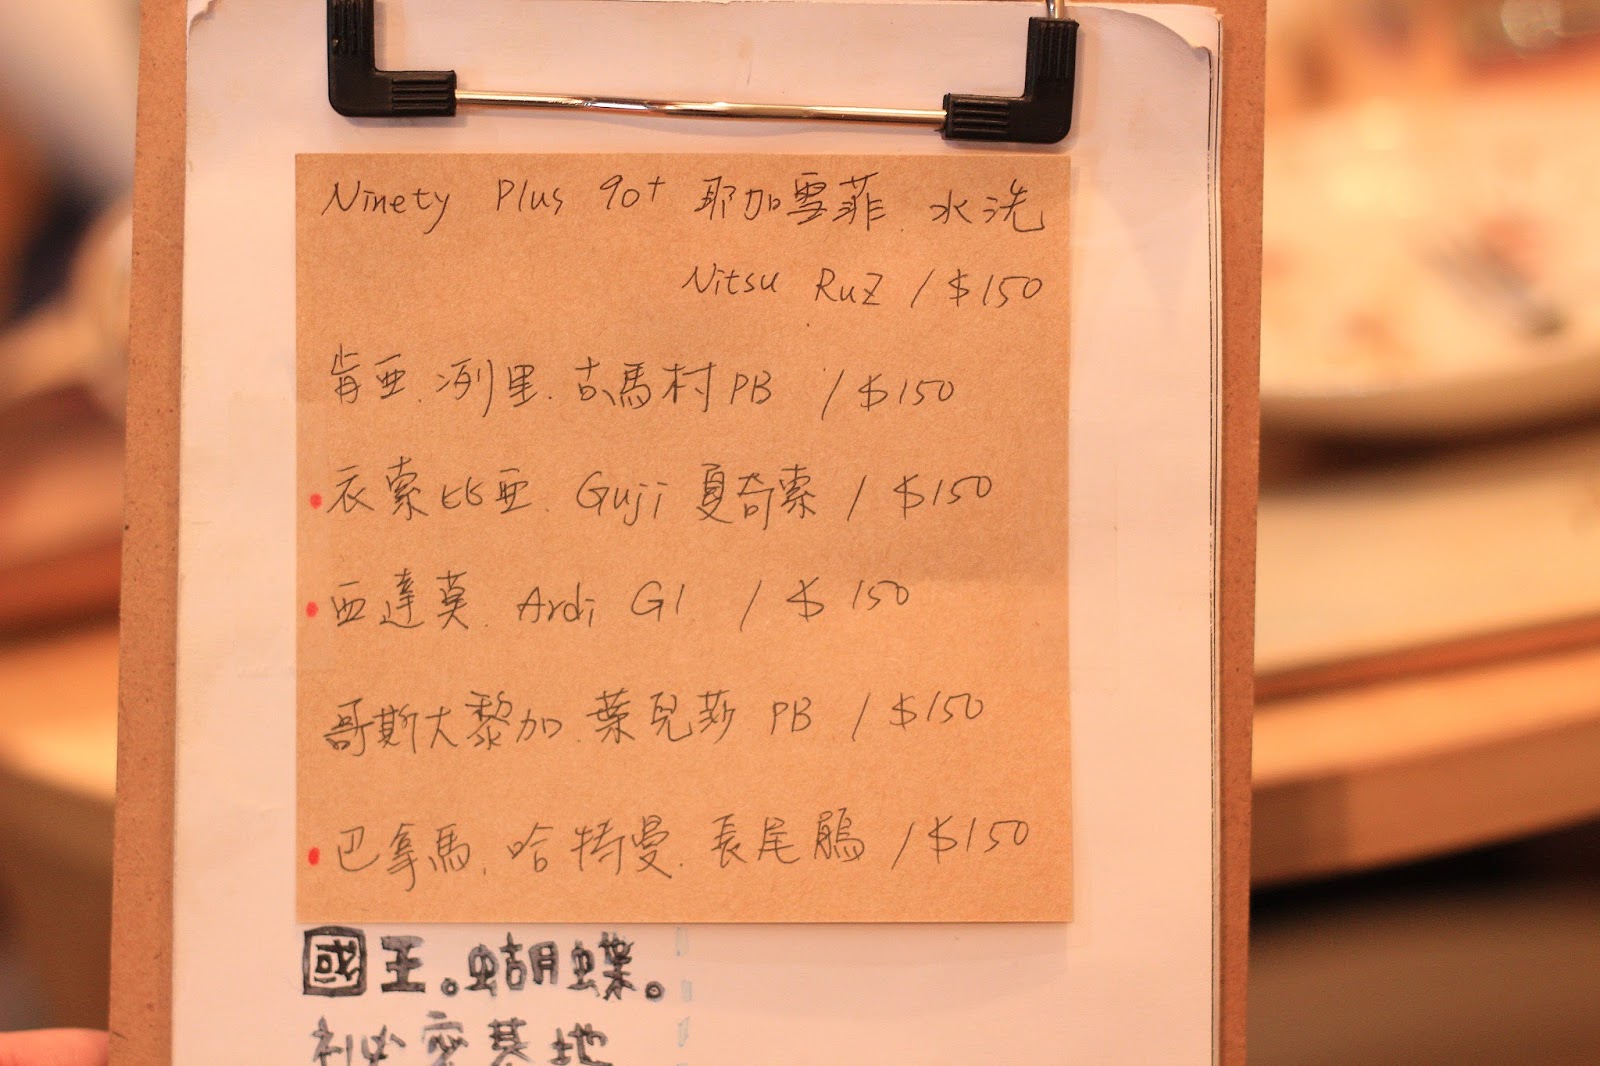 Ninety Plus 90+ 耶加雪菲 水洗
Nitsu Ruz / $150
肯亞.冽里.古馬村PB / $150
衣索比亞. Guji 夏奇索 / $150
西達莫. Ardi G1 / $150
哥斯大黎加.葉兒莎 PB / $150
巴拿馬.哈特曼.長尾鵬 / $150
國王。蝴蝶。
祕密基地